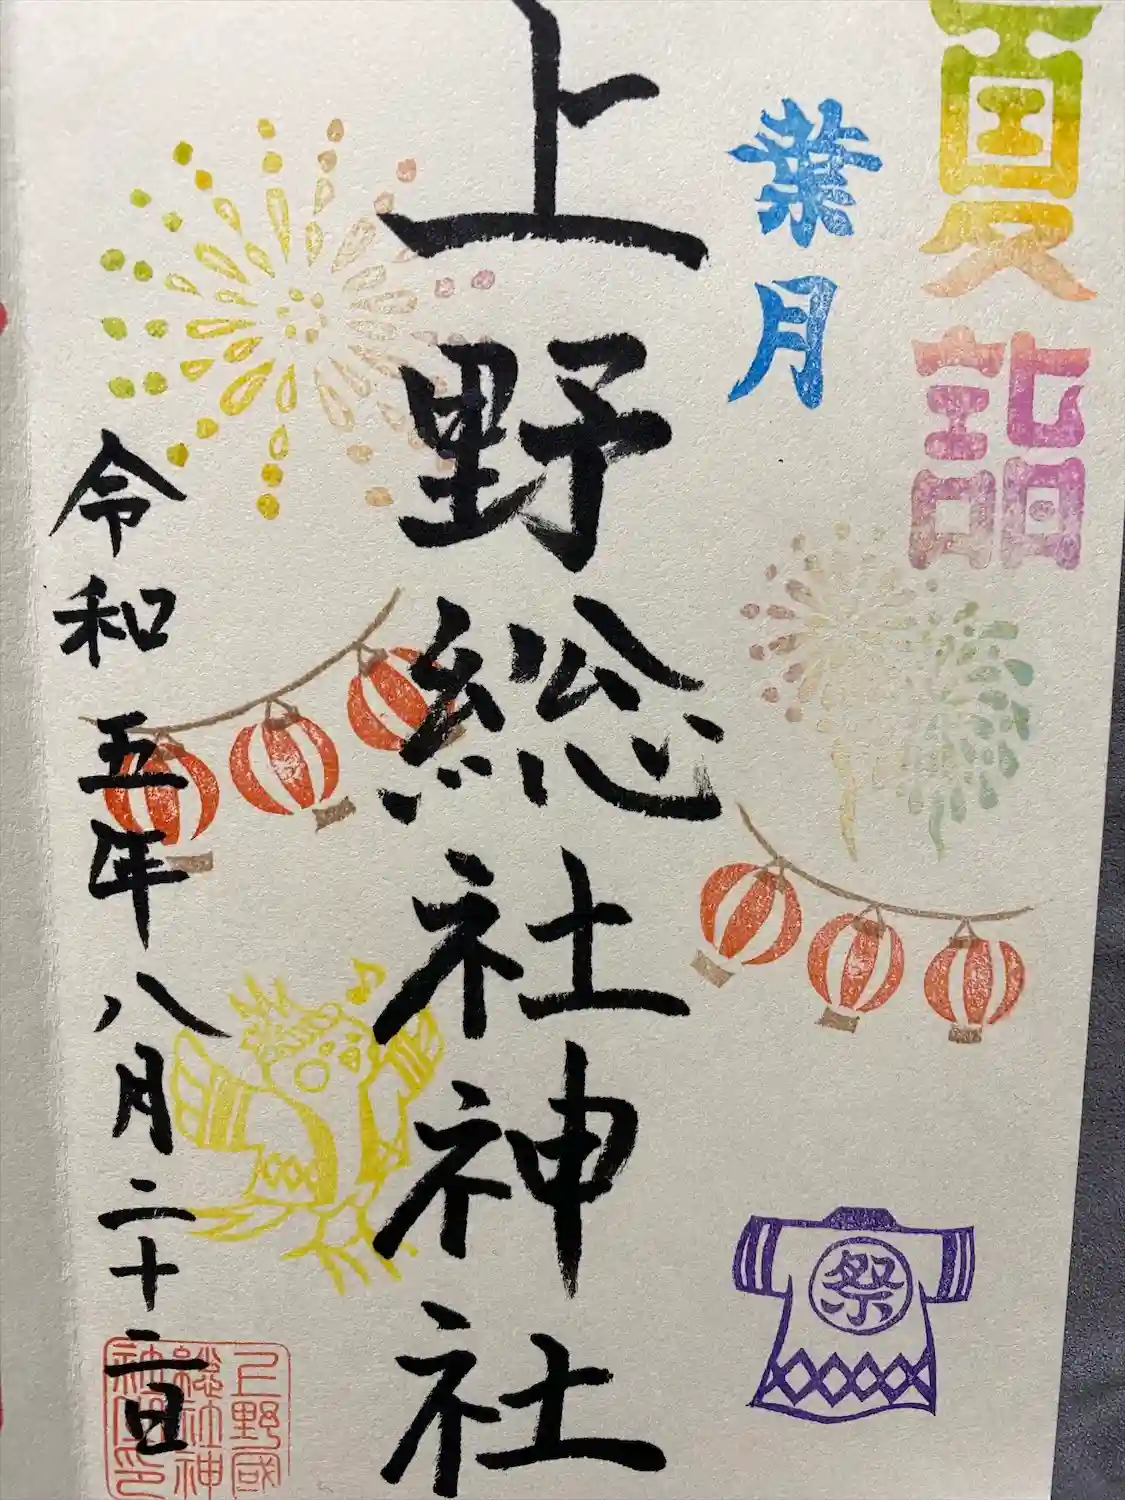 夏詣
葉月
祭
上野総社神社
令和五年八月二十二日
上野國
總社神
社印